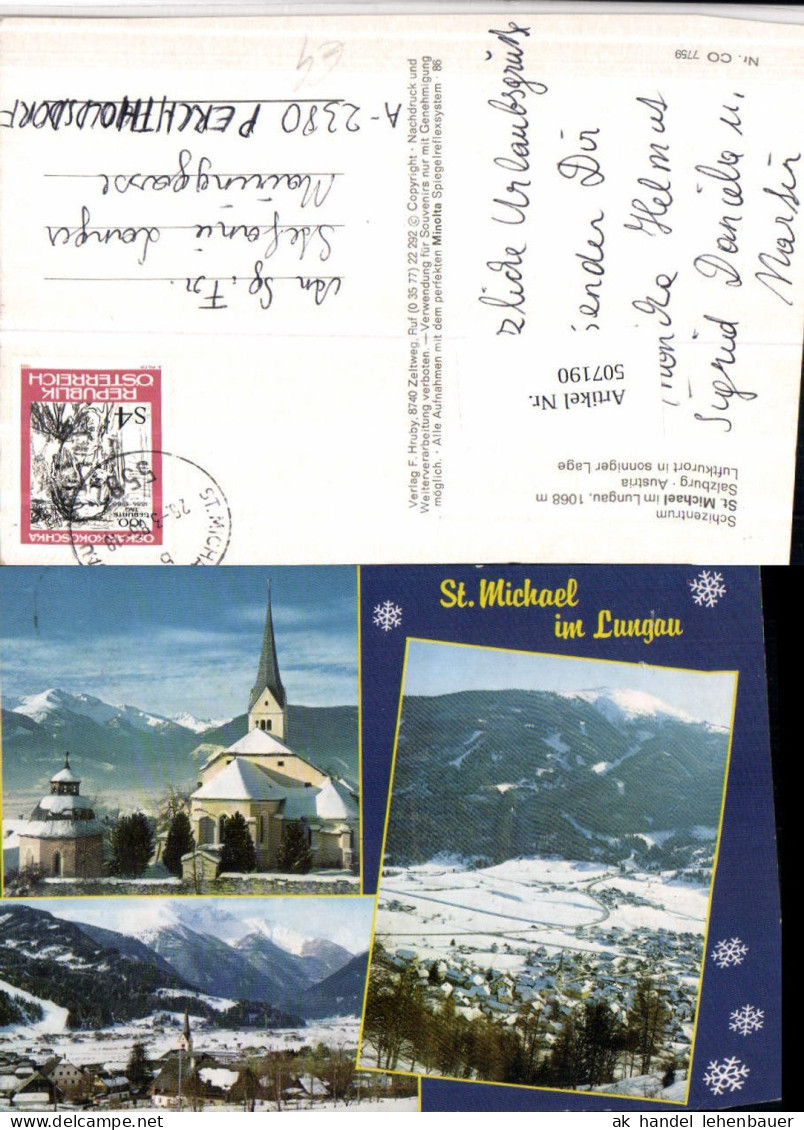 Schizentrum
St. Michael im Lungau, 1068 m
Salzburg · Austria
Luftkurort in sonniger Lage
Artikel Nr.
507190
zliche Urlaubsgrüße
senden Dir
Monika Helmut
Sigrid Daniela u.
Martin
Nr. CO 7759
Verlag F. Hruby, 8740 Zeltweg, Ruf (0 35 77) 22 292 © Copyright · Nachdruck und
Weiterverarbeitung verboten. — Verwendung für Souvenirs nur mit Genehmigung
möglich. · Alle Aufnahmen mit dem perfekten Minolta Spiegelreflexsystem · 86
OSKAR KOKOSCHKA
100.
GEBURTS
TAG
1886-1980
S4
REPUBLIK
ÖSTERREICH
ST. MICHA
5582
b
An Sg. Frl.
Stefanie Langer
Mauringgasse
A-2380 PERCHTHOLDSDORF
St. Michael
im Lungau
ak handel lehenbauer